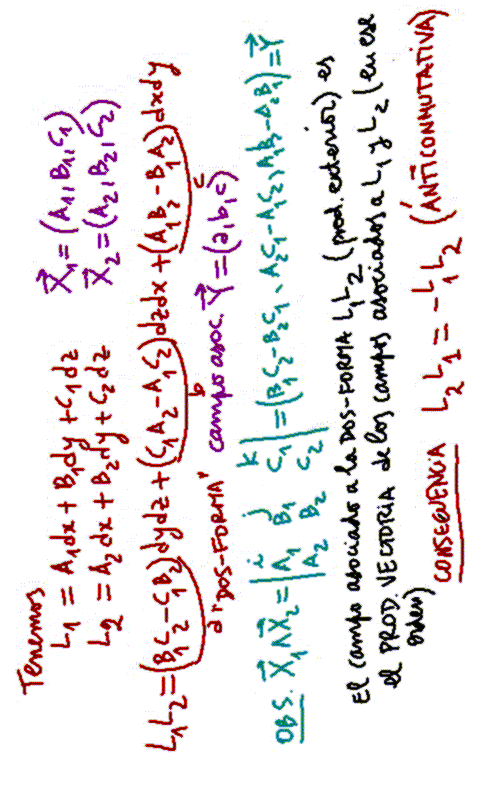 Tenemos
L₁ = A₁dx + B₁dy + C₁dz X⃗₁ = (A₁, B₁, C₁)
L₂ = A₂dx + B₂dy + C₂dz X⃗₂ = (A₂, B₂, C₂)
L₁L₂ = (B₁C₂ - C₁B₂)dydz + (C₁A₂ - A₁C₂)dzdx + (A₁B₂ - B₁A₂)dxdy
a b c
"DOS-FORMA" campo asoc. Y⃗ = (a, b, c)
OBS. X⃗₁ ∧ X⃗₂ = | i j k ; A₁ B₁ C₁ ; A₂ B₂ C₂ | = (B₁C₂ - B₂C₁, A₂C₁ - A₁C₂, A₁B₂ - A₂B₁) = Y⃗
El campo asociado a la DOS-FORMA L₁L₂ (prod. exterior) es
el PROD. VECTORIA de los campos asociados a L₁ y L₂ (en ese
orden)
CONSECUENCIA L₂L₁ = -L₁L₂ (ANTICONMUTATIVA)